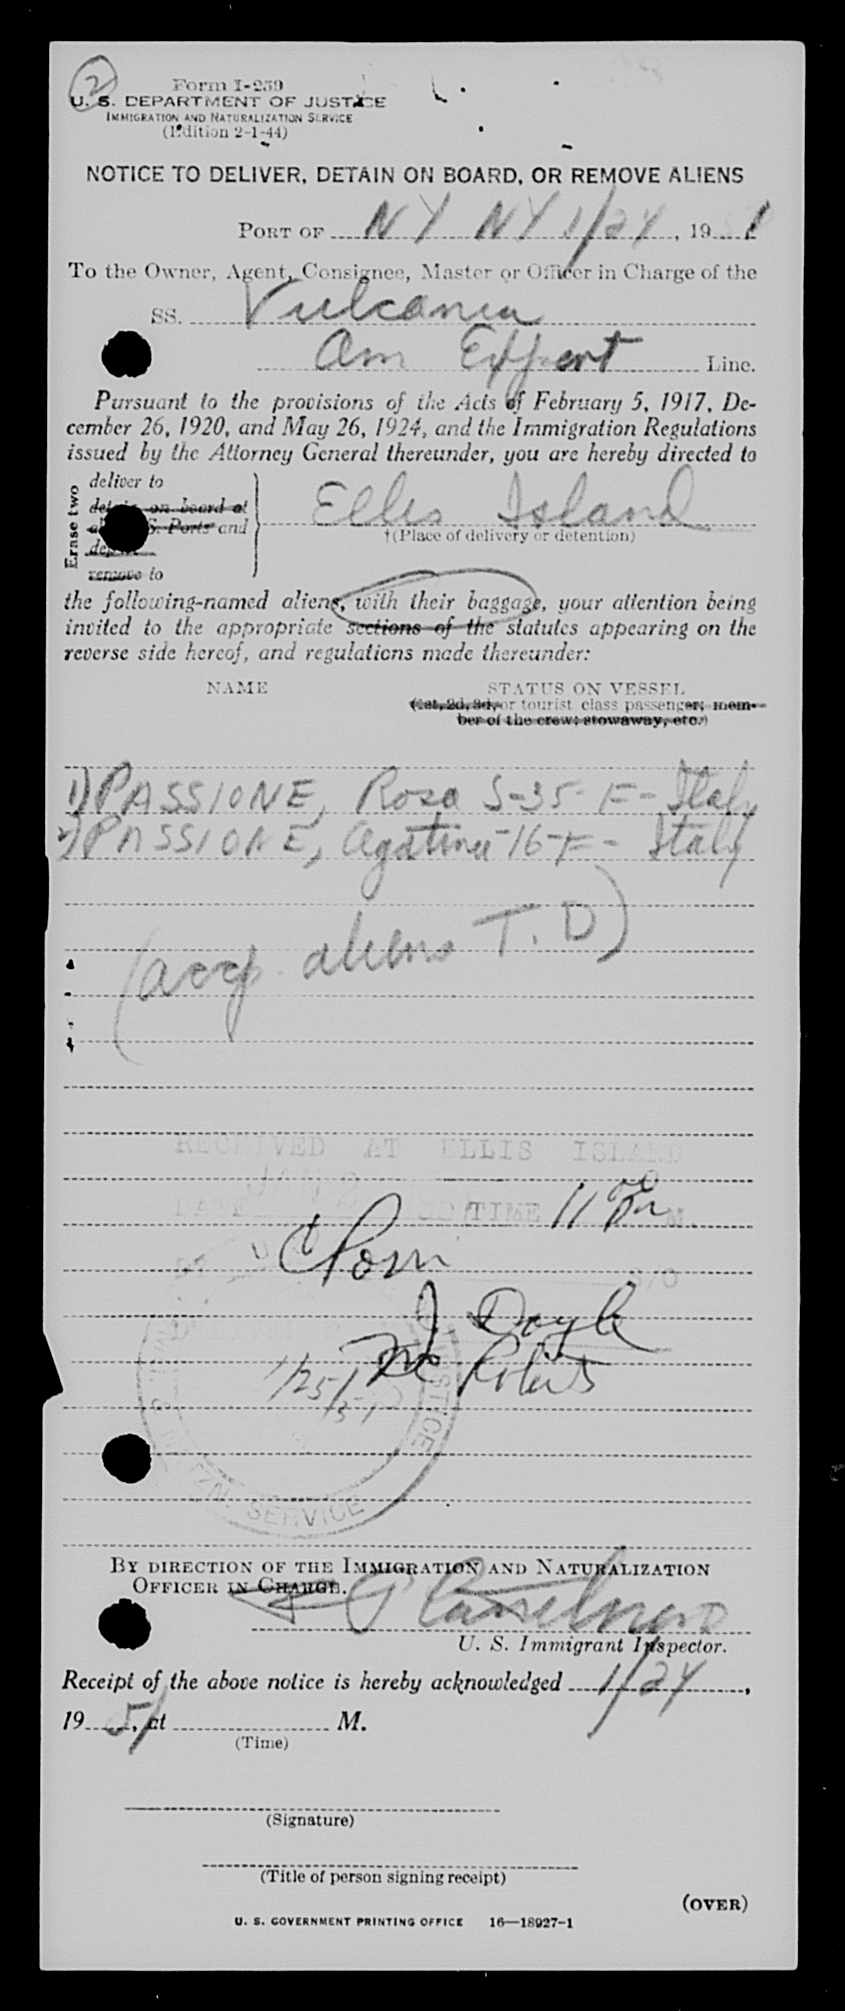 2
Form I-259
U. S. DEPARTMENT OF JUSTICE
IMMIGRATION AND NATURALIZATION SERVICE
(Edition 2-1-44)
NOTICE TO DELIVER, DETAIN ON BOARD, OR REMOVE ALIENS
PORT OF NY NY 1/24, 1951
To the Owner, Agent, Consignee, Master or Officer in Charge of the
SS. Vulcania
Am Export Line.
Pursuant to the provisions of the Acts of February 5, 1917, De-
cember 26, 1920, and May 26, 1924, and the Immigration Regulations
issued by the Attorney General thereunder, you are hereby directed to
Erase two
deliver to
detain on board at
S. Ports and
remove to
Ellis Island
†(Place of delivery or detention)
the following-named aliens, with their baggage, your attention being
invited to the appropriate sections of the statutes appearing on the
reverse side hereof, and regulations made thereunder:
NAME STATUS ON VESSEL
(1st, 2d, 3d, or tourist class passenger; mem-
ber of the crew; stowaway, etc.)
1) PASSIONE, Rosa S-35-F-Italy
2) PASSIONE, Agatina-16-F- Italy
(accp. aliens T. D)
RECEIVED AT ELLIS ISLAND
DATE JAN 2 TIME 11 M.
J. Doyle
1/25/51
SERVICE
BY DIRECTION OF THE IMMIGRATION AND NATURALIZATION
OFFICER IN CHARGE.
U. S. Immigrant Inspector.
Receipt of the above notice is hereby acknowledged 1/24,
1951, at M.
(Time)
(Signature)
(Title of person signing receipt)
(OVER)
U. S. GOVERNMENT PRINTING OFFICE 16—18927-1